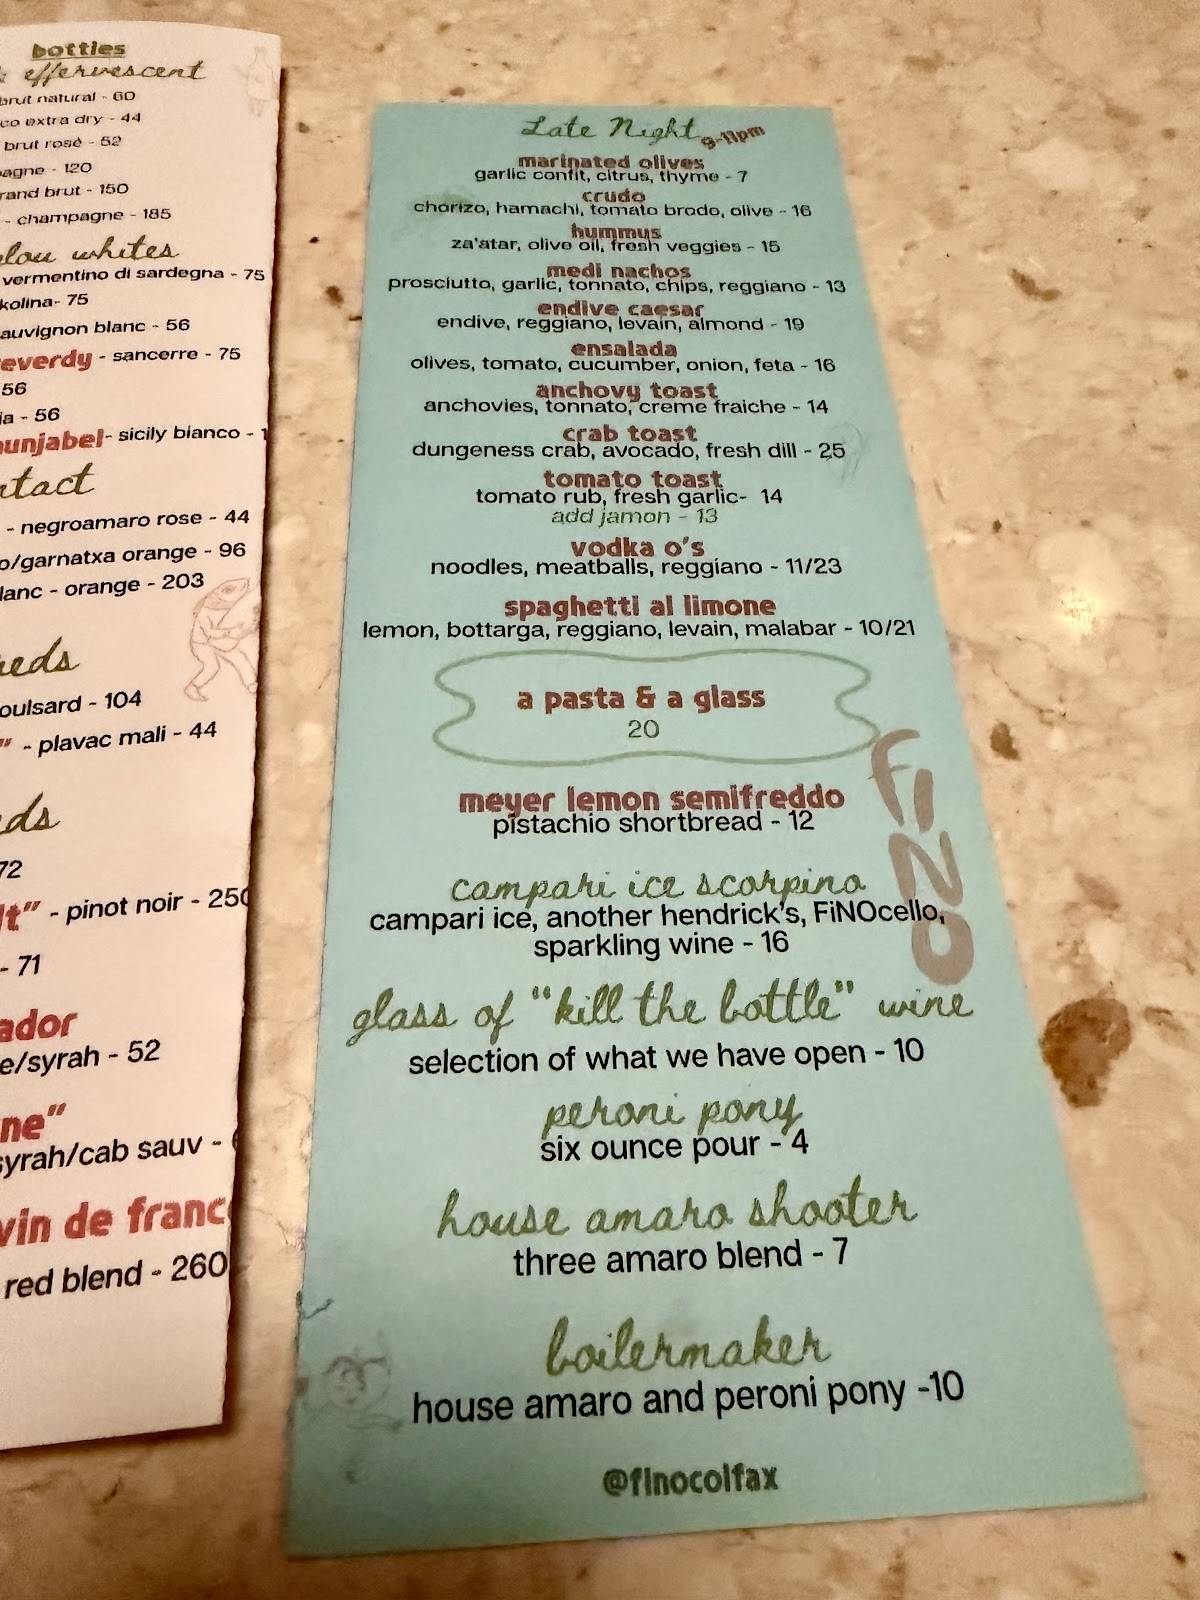 bottles
effervescent
brut natural - 60
co extra dry - 44
brut rosé - 52
agne - 120
rand brut - 150
- champagne - 185
whites
vermentino di sardegna - 75
kolina- 75
auvignon blanc - 56
everdy - sancerre - 75
56
ia - 56
unjabel- sicily bianco - 1
ntact
- negroamaro rose - 44
o/garnatxa orange - 96
lanc - orange - 203
eds
oulsard - 104
" - plavac mali - 44
eds
72
lt" - pinot noir - 250
- 71
ador
e/syrah - 52
ne"
syrah/cab sauv -
vin de franc
red blend - 260
Late Night 9-11pm
marinated olives
garlic confit, citrus, thyme - 7
crudo
chorizo, hamachi, tomato brodo, olive - 16
hummus
za'atar, olive oil, fresh veggies - 15
medi nachos
prosciutto, garlic, tonnato, chips, reggiano - 13
endive caesar
endive, reggiano, levain, almond - 19
ensalada
olives, tomato, cucumber, onion, feta - 16
anchovy toast
anchovies, tonnato, creme fraiche - 14
crab toast
dungeness crab, avocado, fresh dill - 25
tomato toast
tomato rub, fresh garlic- 14
add jamon - 13
vodka o's
noodles, meatballs, reggiano - 11/23
spaghetti al limone
lemon, bottarga, reggiano, levain, malabar - 10/21
a pasta & a glass
20
meyer lemon semifreddo
pistachio shortbread - 12
FiNO
campari ice scorpino
campari ice, another hendrick's, FiNOcello,
sparkling wine - 16
glass of "kill the bottle" wine
selection of what we have open - 10
peroni pony
six ounce pour - 4
house amaro shooter
three amaro blend - 7
boilermaker
house amaro and peroni pony -10
@finocolfax